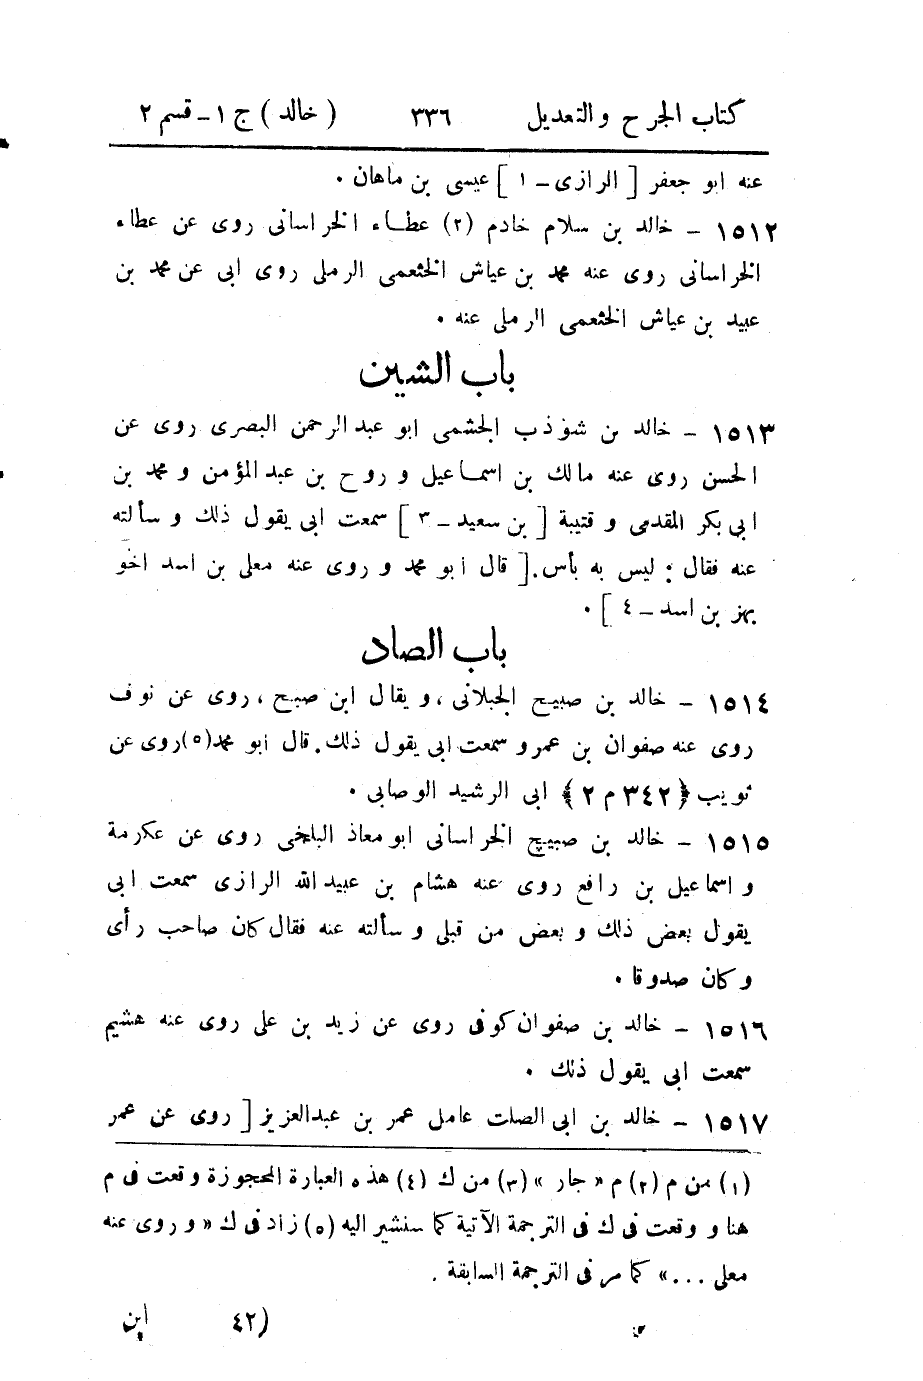 كتاب الجرح والتعديل ٣٣٦ (خالد) ج ١ - قسم ٢
عنه ابو جعفر [ الرازى - ١ ] عيسى بن ماهان .
١٥١٢ - خالد بن سلام خادم (٢) عطاء الخراسانى روى عن عطاء
الخراسانى روى عنه محمد بن عياش الخثعمى الرملى روى ابى عن محمد بن
عبيد بن عياش الخثعمى الرملى عنه .
باب الشين
١٥١٣ - خالد بن شوذب الجشمى ابو عبد الرحمن البصرى روى عن
الحسن روى عنه مالك بن اسماعيل و روح بن عبد المؤمن و محمد بن
ابى بكر المقدمى و قتيبة [ بن سعيد - ٣ ] سمعت ابى يقول ذلك و سألته
عنه فقال : ليس به بأس . [ قال ابو محمد و روى عنه معلى بن اسد اخو
بهز بن اسد - ٤ ] .
باب الصاد
١٥١٤ - خالد بن صبيح الجبلانى ، و يقال ابن صبح ، روى عن نوف
روى عنه صفوان بن عمرو سمعت ابى يقول ذلك . قال ابو محمد (٥) روى عن
ثويب ﴿ ٣٤٢ م ٢ ﴾ ابى الرشيد الوصابى .
١٥١٥ - خالد بن صبيح الخراسانى ابو معاذ البلخى روى عن عكرمة
و اسماعيل بن رافع روى عنه هشام بن عبيد الله الرازى سمعت ابى
يقول بعض ذلك و بعض من قبلى و سألته عنه فقال كان صاحب رأى
و كان صدوقا .
١٥١٦ - خالد بن صفوان كوفى روى عن زيد بن على روى عنه هشيم
سمعت ابى يقول ذلك .
١٥١٧ - خالد بن ابى الصلت عامل عمر بن عبد العزيز [ روى عن عمر
(١) من م (٢) م « جار » (٣) من ك (٤) هذه العبارة المحجوزة وقعت فى م
هنا و وقعت فى ك فى الترجمة الآتية كما سنشير اليه (٥) زاد فى ك « و روى عنه
معلى ... » كما مر فى الترجمة السابقة .
(٤٢ ابن